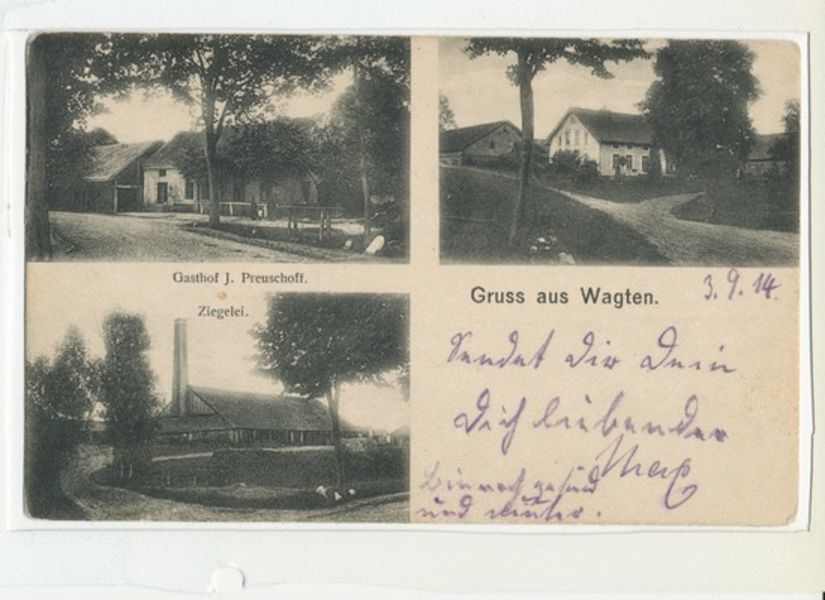 Gasthof J. Preuschoff.
Ziegelei.
Gruss aus Wagten.
3.9.14.
Sendet Dir Dein
Dich liebender
Max
Bin noch gesund
und munter.